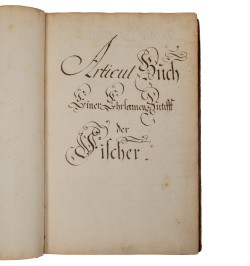 Articul Buch
Einer Ehrsamen Zunfft
der
Fischer.